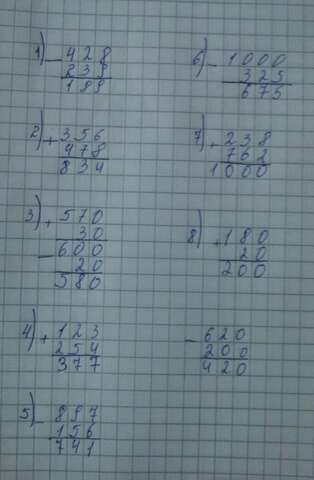 1) - 428
238
188
2) + 356
478
834
3) + 570
30
- 600
20
580
4) + 123
254
377
5) - 897
156
741
6) - 1000
325
675
7) + 238
762
1000
8) + 180
20
200
- 620
200
420